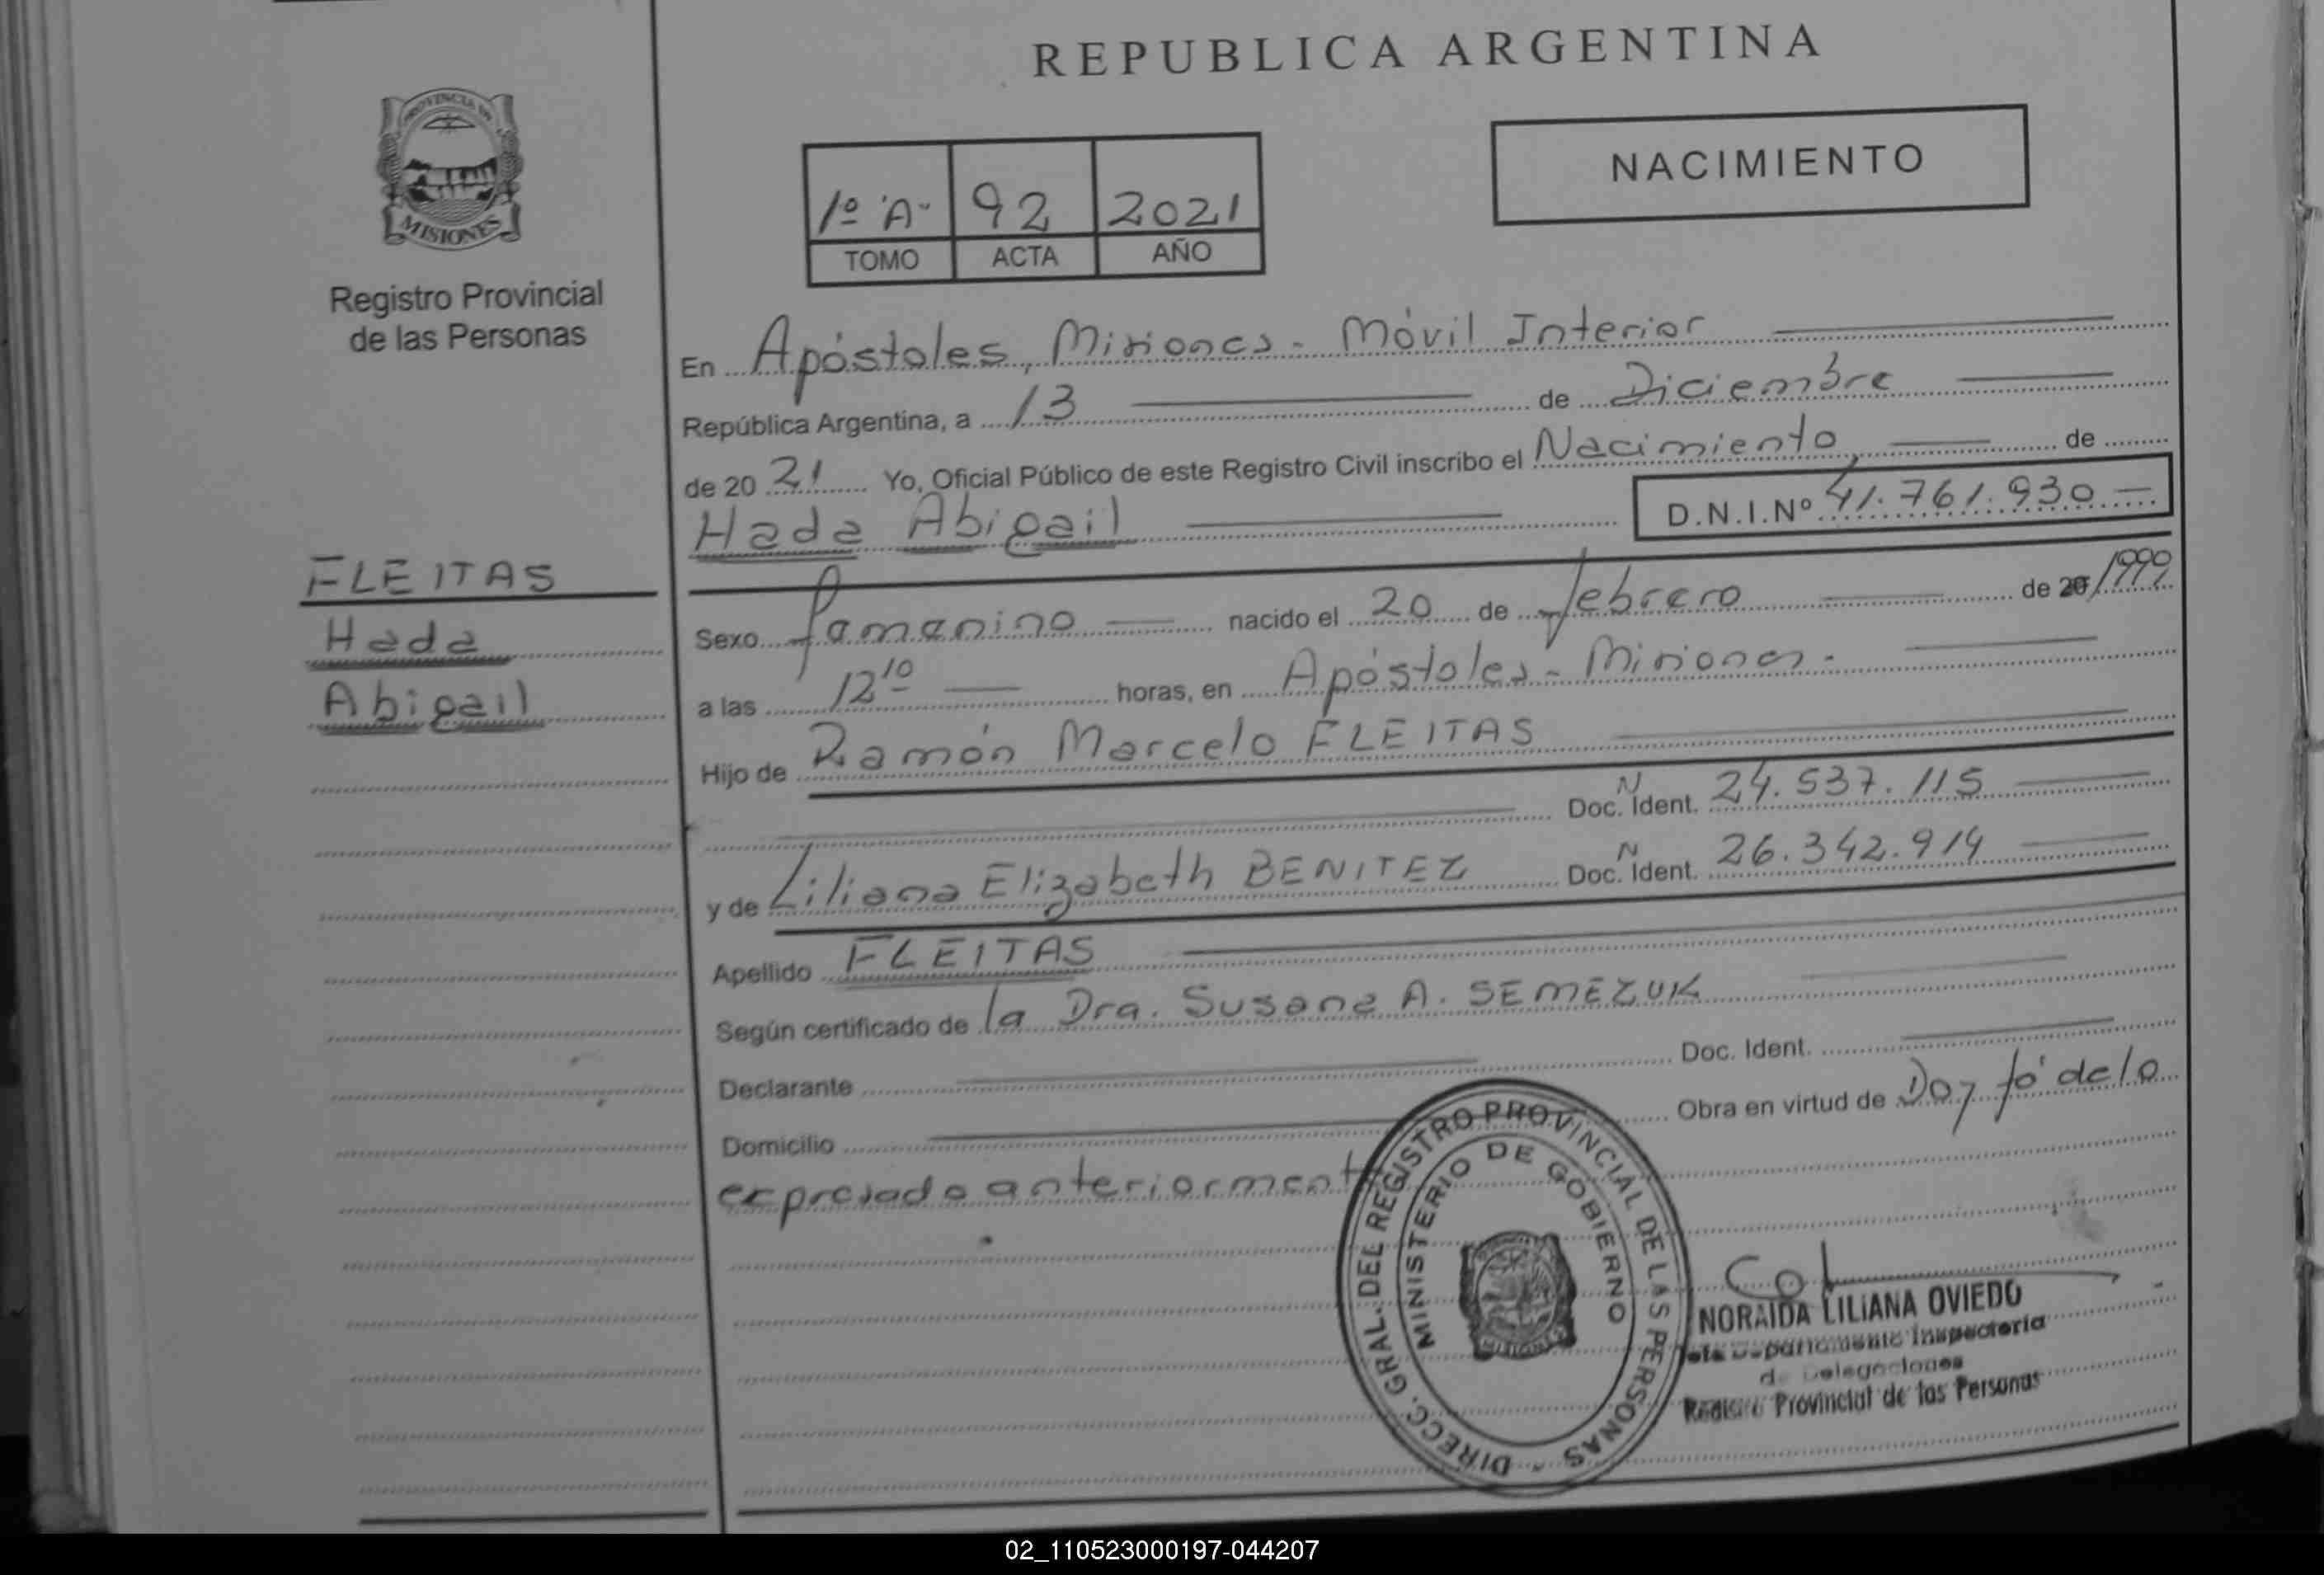 REPUBLICA ARGENTINA
PROVINCIA DE
MISIONES
Registro Provincial
de las Personas
NACIMIENTO
1º "A" 92 2021
TOMO ACTA AÑO
En Apóstoles, Misiones - Móvil Interior
República Argentina, a 13 de Diciembre
de 20 21 Yo, Oficial Público de este Registro Civil inscribo el Nacimiento de
Hada Abigail D.N.I.Nº 41.761.930
FLEITAS
Hada
Abigail
Sexo femenino nacido el 20 de febrero de 20 1999
a las 12 10 horas, en Apóstoles - Misiones -
Hijo de Ramón Marcelo FLEITAS
Doc. N Ident. 24.537.115
y de Liliana Elizabeth BENITEZ Doc. N Ident. 26.342.914
Apellido FLEITAS
Según certificado de la Dra. Susana A. SEMEZUK
Declarante Doc. Ident.
Domicilio Obra en virtud de Doy fé de lo
expresado anteriorment
DIRECC. GRAL. DEL REGISTRO PROVINCIAL DE LAS PERSONAS -
MINISTERIO DE GOBIERNO
MISIONES
NORAIDA LILIANA OVIEDO
Jefe Departamento Inspectoría
de Delegaciones
Registro Provincial de las Personas
02_110523000197-044207